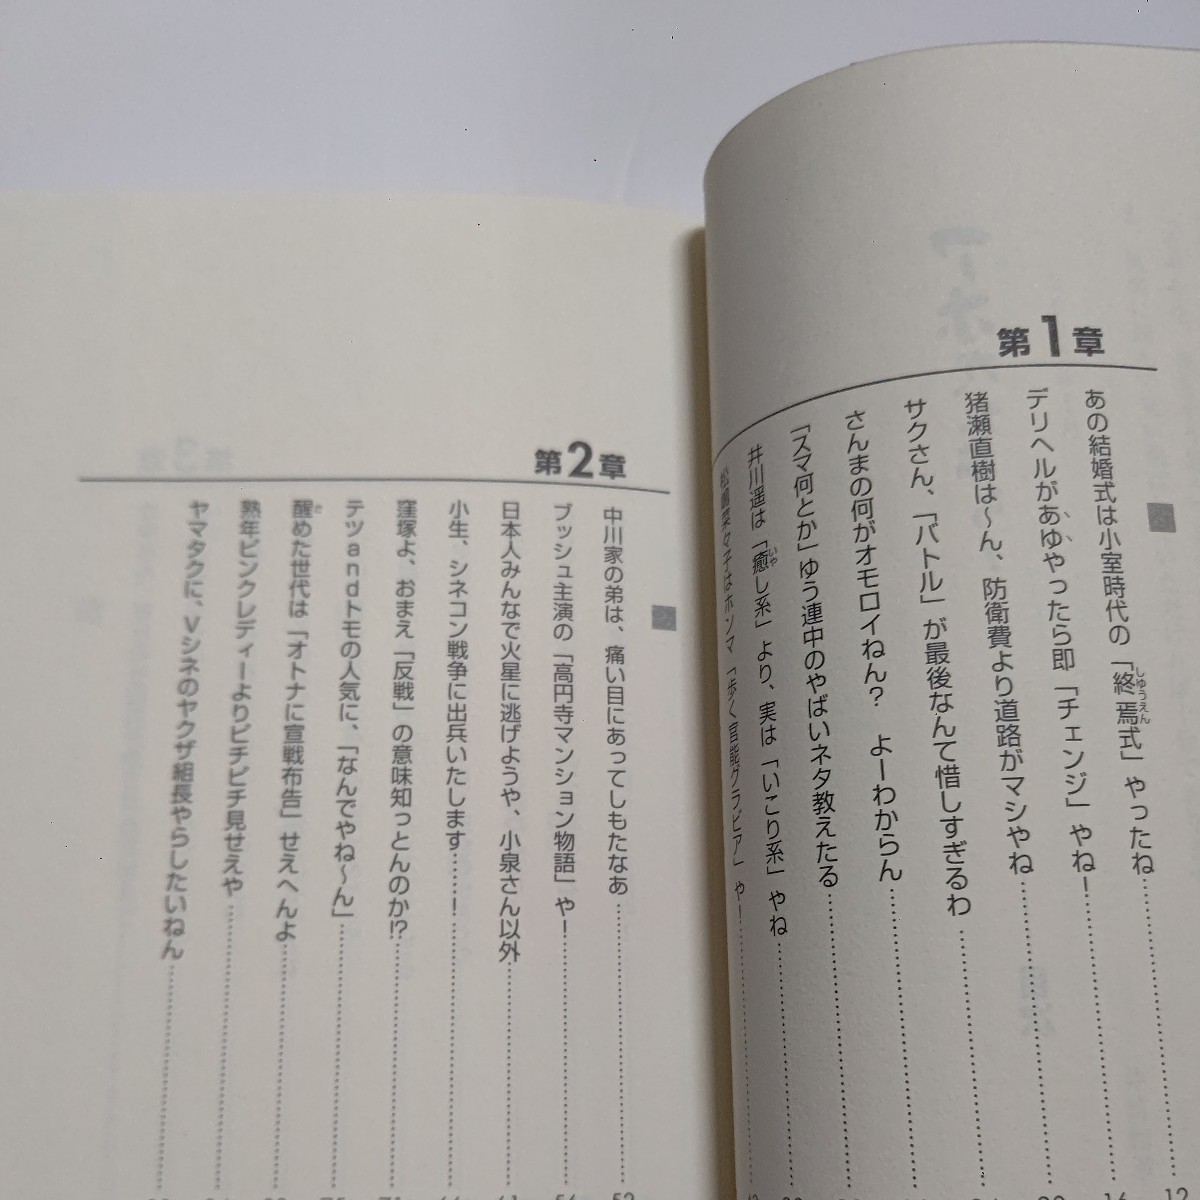 第1章
あの結婚式は小室時代の「終焉式」やったね
しゆうえん
デリヘルがあゆやったら即「チェンジ」やね！
猪瀬直樹は～ん、防衛費より道路がマシやね
サクさん、「バトル」が最後なんて惜しすぎるわ
さんまの何がオモロイねん？　よーわからん
「スマ何とか」ゆう連中のやばいネタ教えたる
井川遥は「癒し系」より、実は「いこり系」やね
いや
松嶋菜々子はホンマ「歩く官能グラビア」や！
12
16
第2章
中川家の弟は、痛い目にあってしもたなあ
ブッシュ主演の「高円寺マンション物語」や！
日本人みんなで火星に逃げようや、小泉さん以外
小生、シネコン戦争に出兵いたします……！
窪塚よ、おまえ「反戦」の意味知っとんのか!?
テツandトモの人気に、「なんでやね～ん」
醒めた世代は「オトナに宣戦布告」せえへんよ
さ
熟年ピンクレディーよりピチピチ見せえや
ヤマタクに、Vシネのヤクザ組長やらしたいねん
52